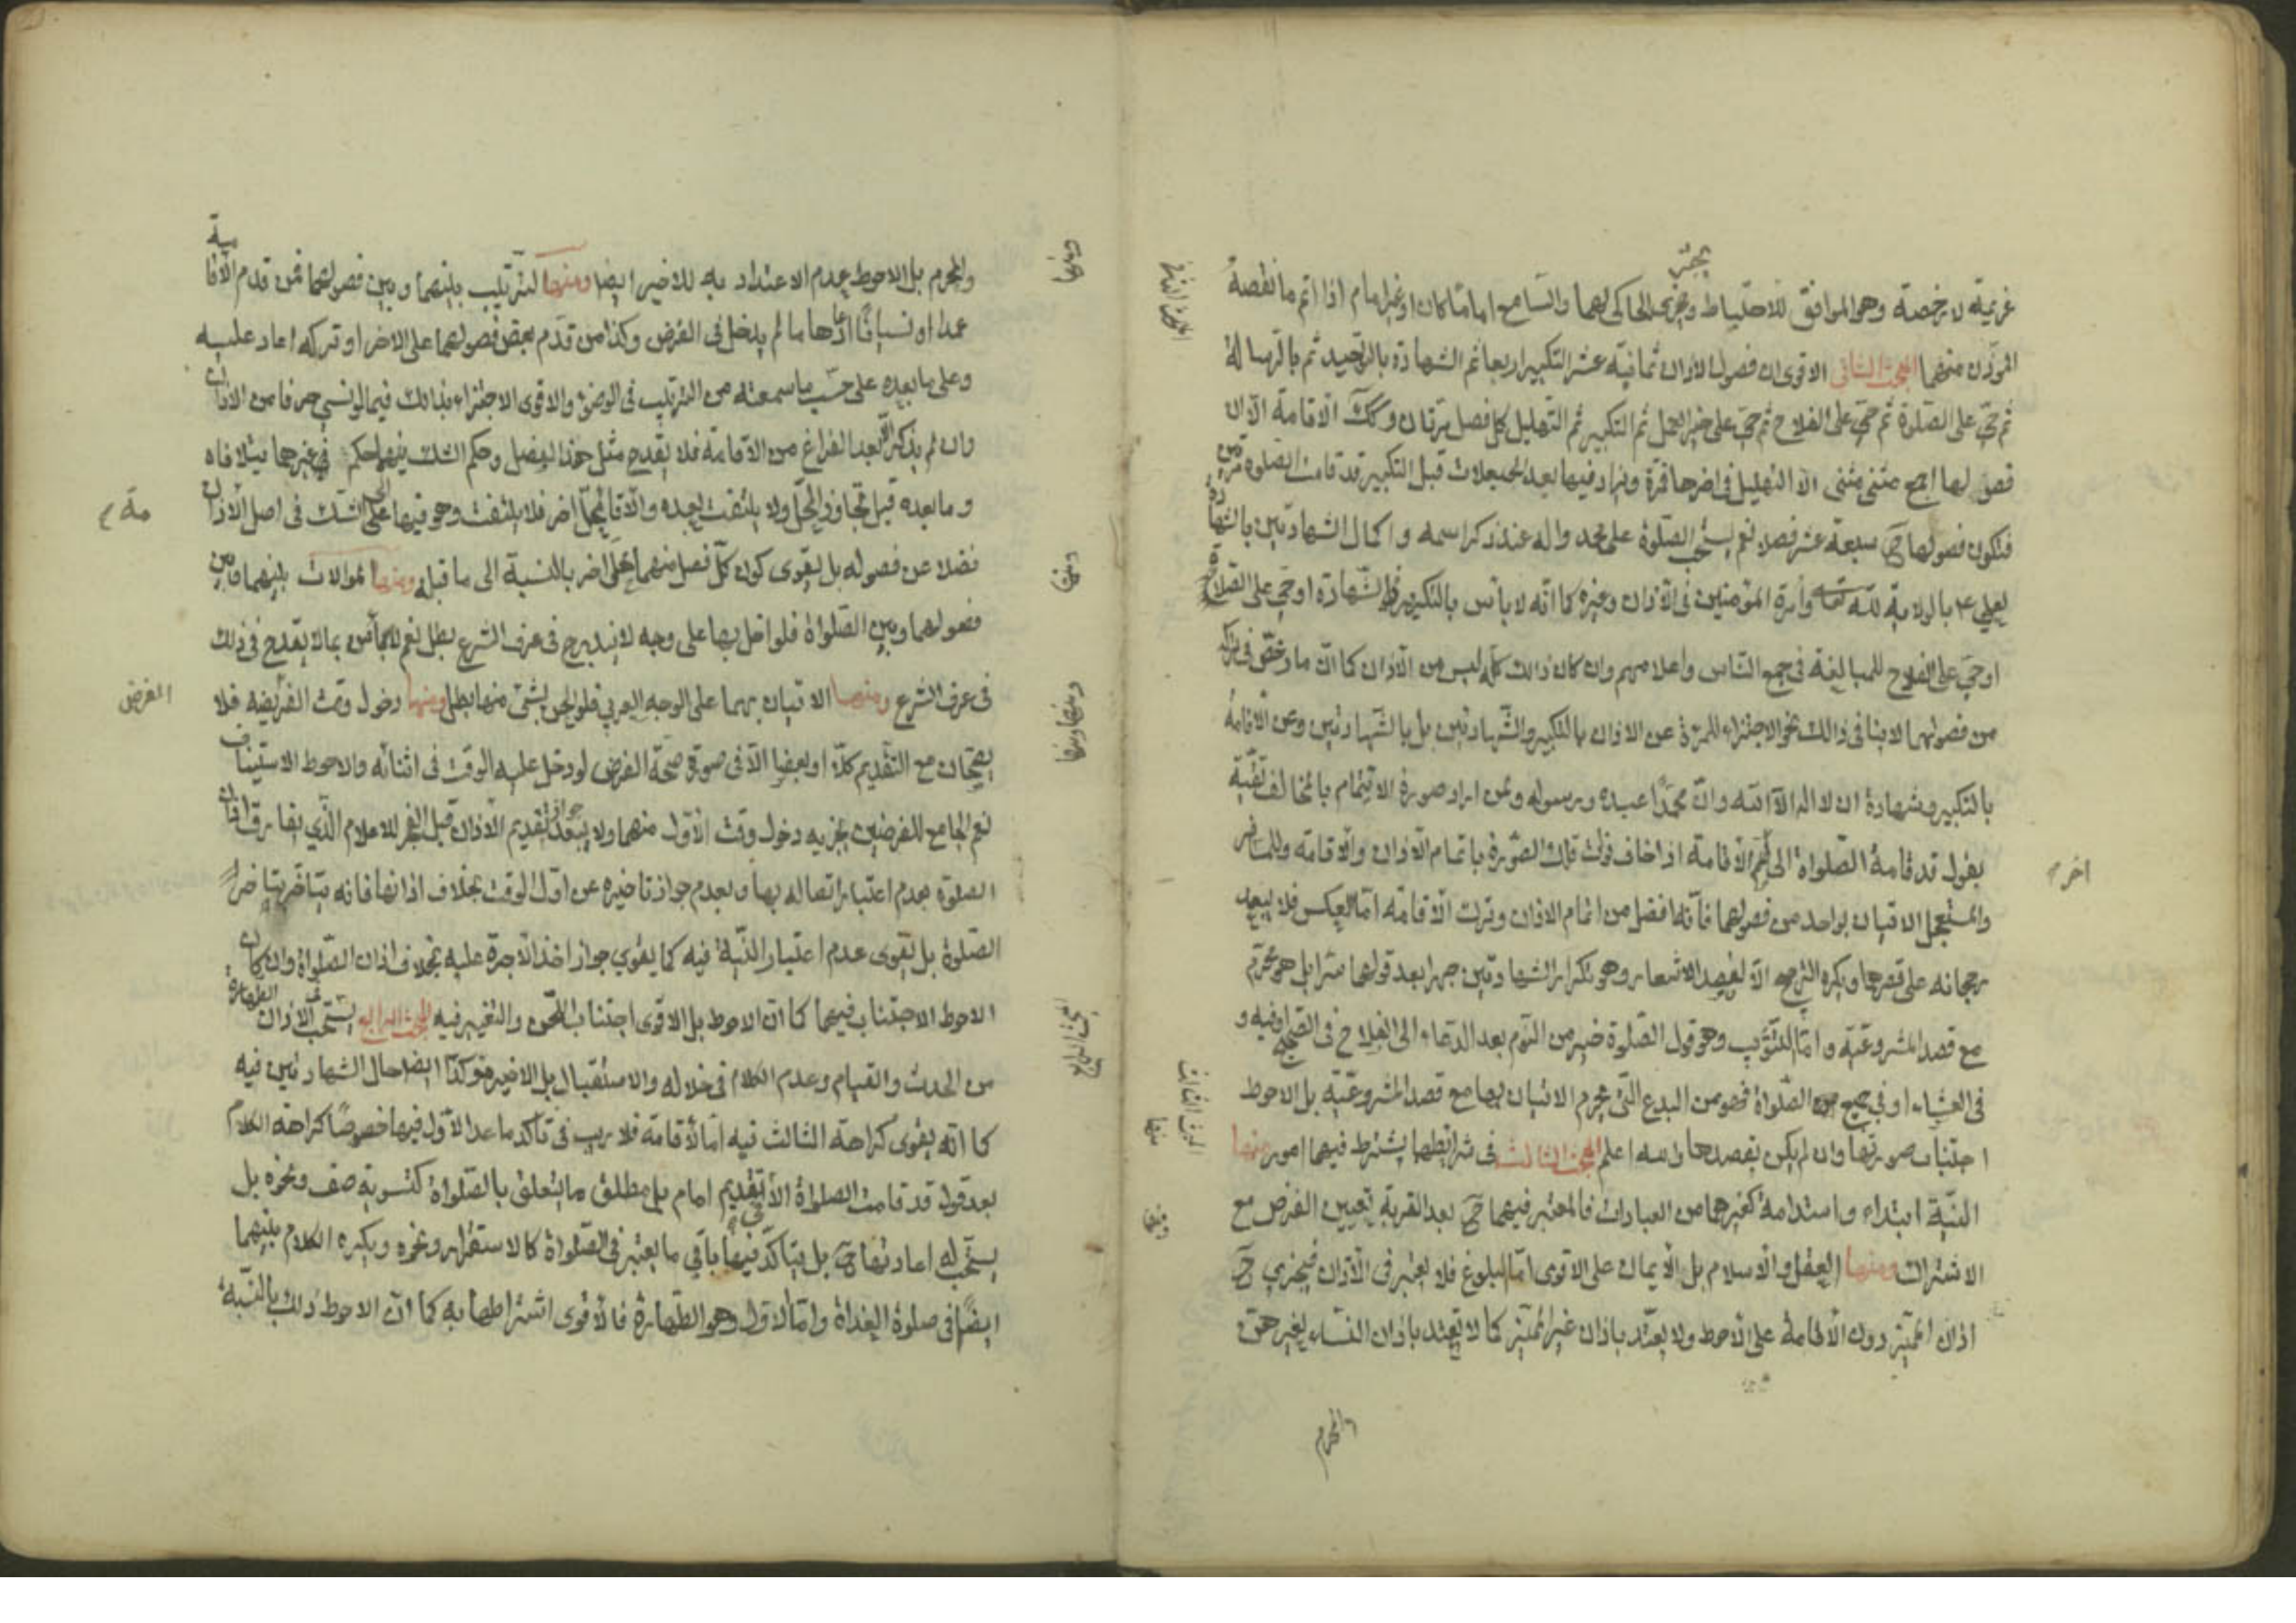 عزيمة لا رخصة وهو الموافق للاحتياط ويجزي الحاكي لهما والسامع اماما كان او غير امام اذا اتم ما نقصه
المؤذن منهما المبحث الثاني الاقوى ان فصول الاذان ثمانية عشر التكبير اربعا ثم الشهادة بالتوحيد ثم بالرسالة
ثم حي على الصلوة ثم حي على الفلاح ثم حي على خير العمل ثم التكبير ثم التهليل كل فصل مرتان وكك الاقامة الا ان
فصولها اجمع مثنى مثنى الا التهليل في اخرها فمرة ويزاد فيها بعد الحيعلات قبل التكبير قد قامت الصلوة مرتين
فتكون فصولها ح سبعة عشر فصلا نعم يستحب الصلوة على محمد واله عند ذكر اسمه واكمال الشهادتين بالشهادة
لعلي ع بالولاية لله تعالى وامرة المؤمنين في الاذان وغيره كما انه لا باس بالتكرير في الشهادة او حي على الصلاة
او حي على الفلاح للمبالغة في جمع الناس واعلامهم وان كان ذالك كله ليس من الاذان كما ان ما رخص في ترك
من فصولهما لا ينافي ذالك نحو الاجتزاء للمرئة عن الاذان بالتكبير والشهادتين بل بالشهادتين وعن الاقامة
بالتكبير وشهادة ان لا اله الا الله وان محمدا عبده ورسوله ومن اراد صورة الايتمام بالمخالف تقية
يقول قد قامة الصلواة الى اخر الاقامة اذا خاف فوت تلك الصورة باتمام الاذان والاقامة وللمسافر
والمستعجل الاتيان بواحد من فصولهما فانه افضل من اتمام الاذان وترك الاقامة اما العكس فلا يبعد
رجحانه على قصرها ويكره الترجيع الا لقصد الاشعار وهو تكرار الشهادتين جهرا بعد قولهما سرا بل هو محرم
مع قصد المشروعية واما التثويب وهو قول الصلوة خير من النوم بعد الدعاء الى الفلاح في الصبح او فيه و
في العشاء او في جميع الصلواة فهو من البدع التي يحرم الاتيان بها مع قصد المشروعية بل الاحوط
اجتناب صورتها وان لم يكن بقصدها والله اعلم المبحث الثالث في شرائطهما يشترط فيهما امور منها
النية ابتداء واستدامة كغيرهما من العبادات فالمعتبر فيهما ح بعد القربة تعيين الفرض مع
الاشتراك ومنها العقل والاسلام بل الايمان على الاقوى اما البلوغ فلا يعتبر في الاذان فيجزي ح
اذان المميز دون الاقامة على الاحوط ولا يعتد باذان غير المميز كما لا يعتد باذان النساء لغيرهن
والمحرم
المبحث الثاني
اخر
المبحث الثالث
منها
ومنها
والمحرم بل الاحوط عدم الاعتداد به للاخير ايضا ومنها الترتيب بينهما وبين فصولهما فمن قدم الاقامة
عمدا او نسيانا اعادها ما لم يدخل في الفرض وكذا من قدم بعض فصولهما على الاخر او تركه اعاد عليه
وعلى ما بعده على حسب ما سمعته من الترتيب في الوضوء والاقوى الاجتزاء بذالك فيما لو نسي حرفا من الاذان
وان لم يذكر الا بعد الفراغ من الاقامة فلا يقدح مثل هذا الفصل وحكم الشك فيهما حكم في غيرها فيتلافاه
وما بعده قبل تجاوز المحل ولا يلتفت بعده والاقامة محل اخر فلا يلتفت وهو فيها على الشك في اصل الاذان
فضلا عن فصوله بل يقوى كون كل فصل منهما محل اخر بالنسبة الى ما قبله ومنها الموالات بينهما وبين
فصولهما وبين الصلواة فلو اخل بها على وجه لا يندرج في عرف الشرع بطل نعم لا باس بما لا يقدح في ذلك
في عرف الشرع ومنها الاتيان بهما على الوجه العربي فلو لحن بشئ منها بطل ومنها دخول وقت الفريضة فلا
يصحان مع التقديم كلا او بعضا الا في صورة صحة الفرض لو دخل عليه الوقت في اثنائه والاحوط الاستيناف
نعم الجامع للفرضين يجزيه دخول وقت الاول منهما ولا يبعد جواز تقديم الاذان قبل الفجر للاعلام الذي يفارق اذان
الصلوة بعدم اعتبار اتصاله بها وبعدم جواز تاخيره عن اول الوقت بخلاف اذانها فانه يتاخر بتاخر
الصلوة بل يقوى عدم اعتبار النية فيه كما يقوي جواز اخذ الاجرة عليه بخلاف اذان الصلواة وان كان
الاحوط الاجتناب فيهما كما ان الاحوط بل الاقوى اجتناب اللحن والتغيير فيه المبحث الرابع يستحب في الاذان الطهارة
من الحدث والقيام وعدم الكلام في خلاله والاستقبال بل الاخير مؤكدا ايضا حال الشهادتين فيه
كما انه يقوى كراهة الثالث فيه اما الاقامة فلا ريب في تاكد ما عدا الاول فيها خصوصا كراهة الكلام
بعد قول قد قامت الصلواة الا تقديم امام بل مطلق ما يتعلق بالصلواة كتسوية صف ونحوه بل
يستحب له اعادتها ح بل يتاكد فيها باقي ما يعتبر في الصلواة كالاستقرار ونحوه ويكره الكلام بينهما
ايضا في صلوة الغداة واما الاول وهو الطهارة فالاقوى اشتراطها به كما ان الاحوط ذلك بالنسبة
ومنها
مة
ومنها
الفرض
ومنها ومنها
المبحث الرابع